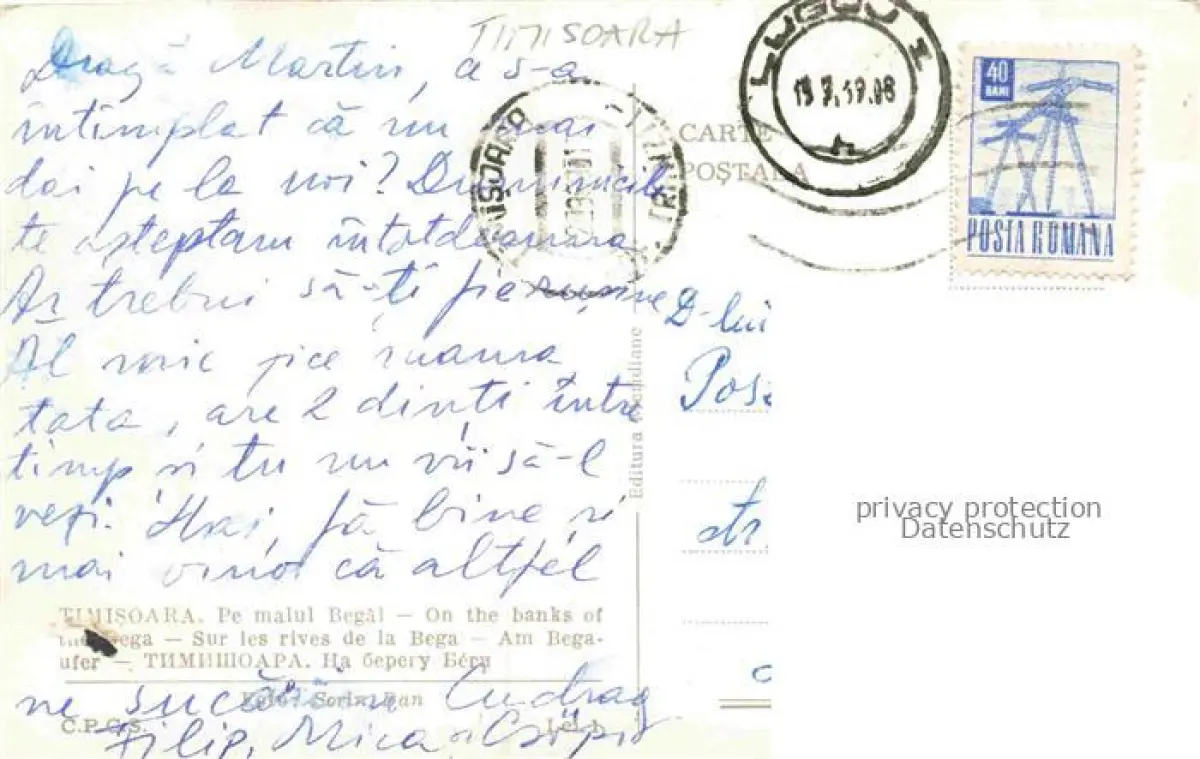 TIMISOARA
Dragă Martin, ce s-a
întîmplat că nu mai
dai pe la noi? Duminicile
te așteptam întotdeauna
Ar trebui să-ți fie rușine
Al
tata, are 2 dinți între
timp și tu nu vii să-l
vezi. Hai, fă bine și
mai vino că altfel
ne supărăm Cu drag
Filip, Mica și
LUGOJ 1
TIMIȘOARA
CARTE
POȘTALA
40
BANI
POSTA ROMANA
D-lui
Pos
str.
Editura Meridiane
TIMISOARA. Pe malul Begăi — On the banks of
the Bega — Sur les rives de la Bega — Am Bega-
ufer — ТИМИШОАРА. На берегу Бéги
Foto: Sorin Dan
C.P.C.S.
Lei 1
privacy protection
Datenschutz